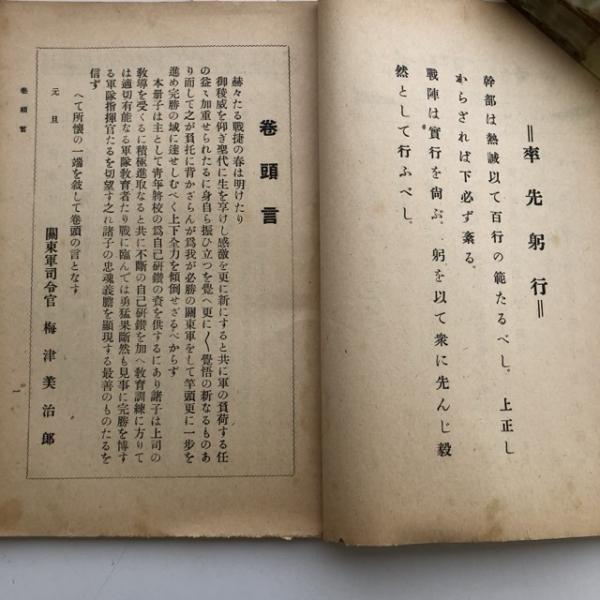 ＝率先躬行＝
幹部は熱誠以て百行の範たるべし。上正し
からざれば下必ず紊る。
戰陣は實行を尙ぶ。躬を以て衆に先んじ毅
然として行ふべし。
卷頭言
赫々たる戰捷の春は明けたり
御稜威を仰ぎ聖代に生を享けし感激を更に新にすると共に軍の負荷する任
の益々加重せられたるに身自ら振ひ立つを覺へ更に〳〵覺悟の新なるものあ
り而して之が負托に背かざらんが爲我が必勝の關東軍をして竿頭更に一步を
進め完勝の域に達せしむべく上下全力を傾倒せざるべからず
本册子は主として靑年將校の爲自己硏鑽の資を供するにあり諸子は上司の
敎導を受くるに積極進取なると共に不斷の自己硏鑽を加へ敎育訓練に方りて
は適切有能なる軍隊敎育者たり戰に臨んでは勇猛果斷然も見事に完勝を博す
る軍隊指揮官たるを切望す之れ諸子の忠魂義膽を顯現する最善のものたるを
信ず
へて所懷の一端を敍して卷頭の言となす
元旦
關東軍司令官 梅津美治郞
卷頭言
一